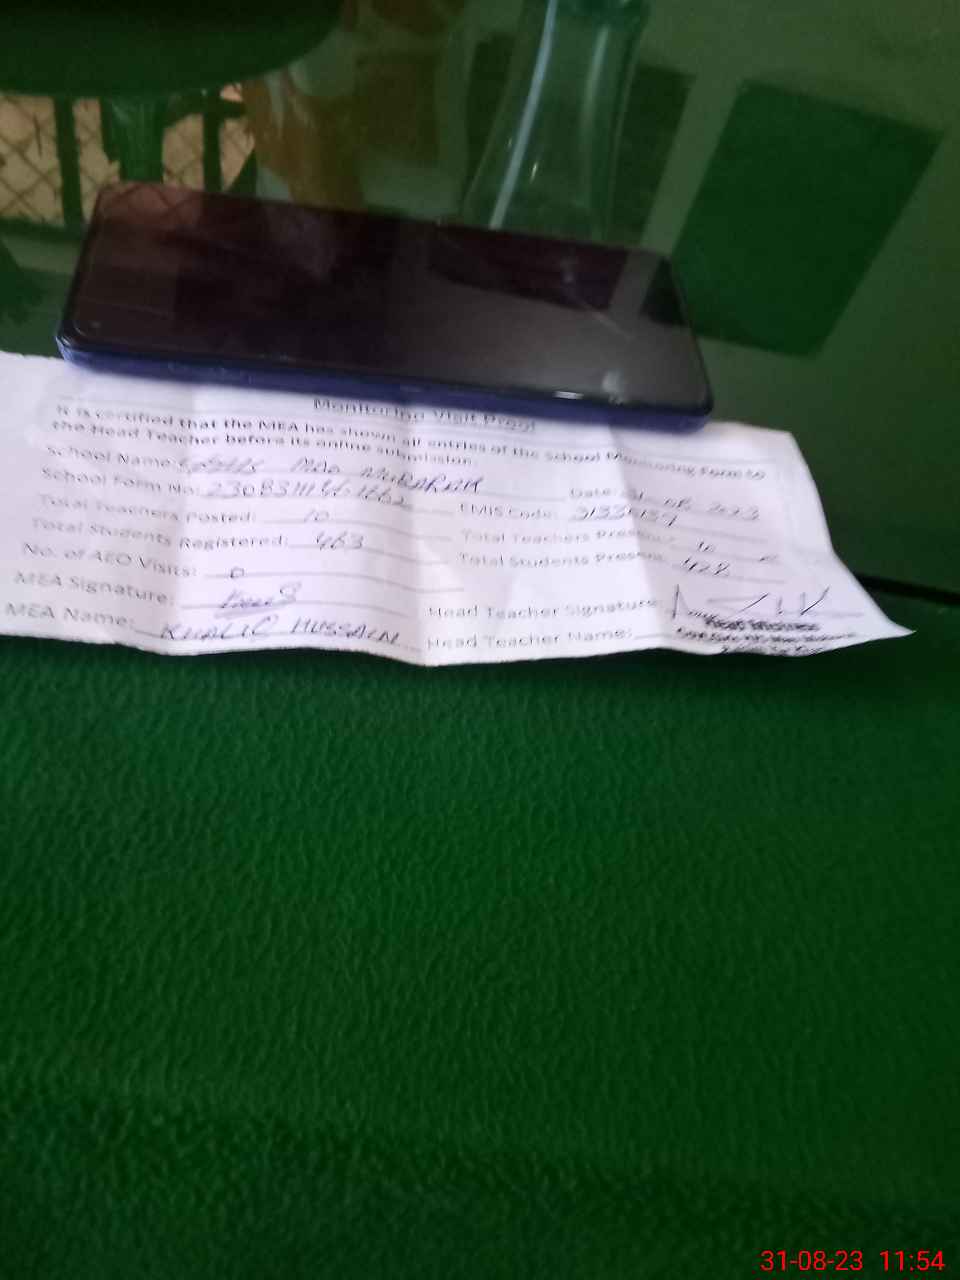 Monitoring Visit Proof
It is certified that the MEA has shown all entries of the School Monitoring Form to
the Head Teacher before its online submission.
School Name: MAO MUBARAK
School Form No: Date: 31-08-2023
Total Teachers Posted: 10 EMIS Code:
Total Students Registered: 463 Total Teachers Present: 10
No. of AEO Visits: 0 Total Students Present: 428
MEA Signature: Head Teacher Signature:
MEA Name: KHALIC HUSSAIN Head Teacher Name:
Head Mistress
31-08-23 11:54